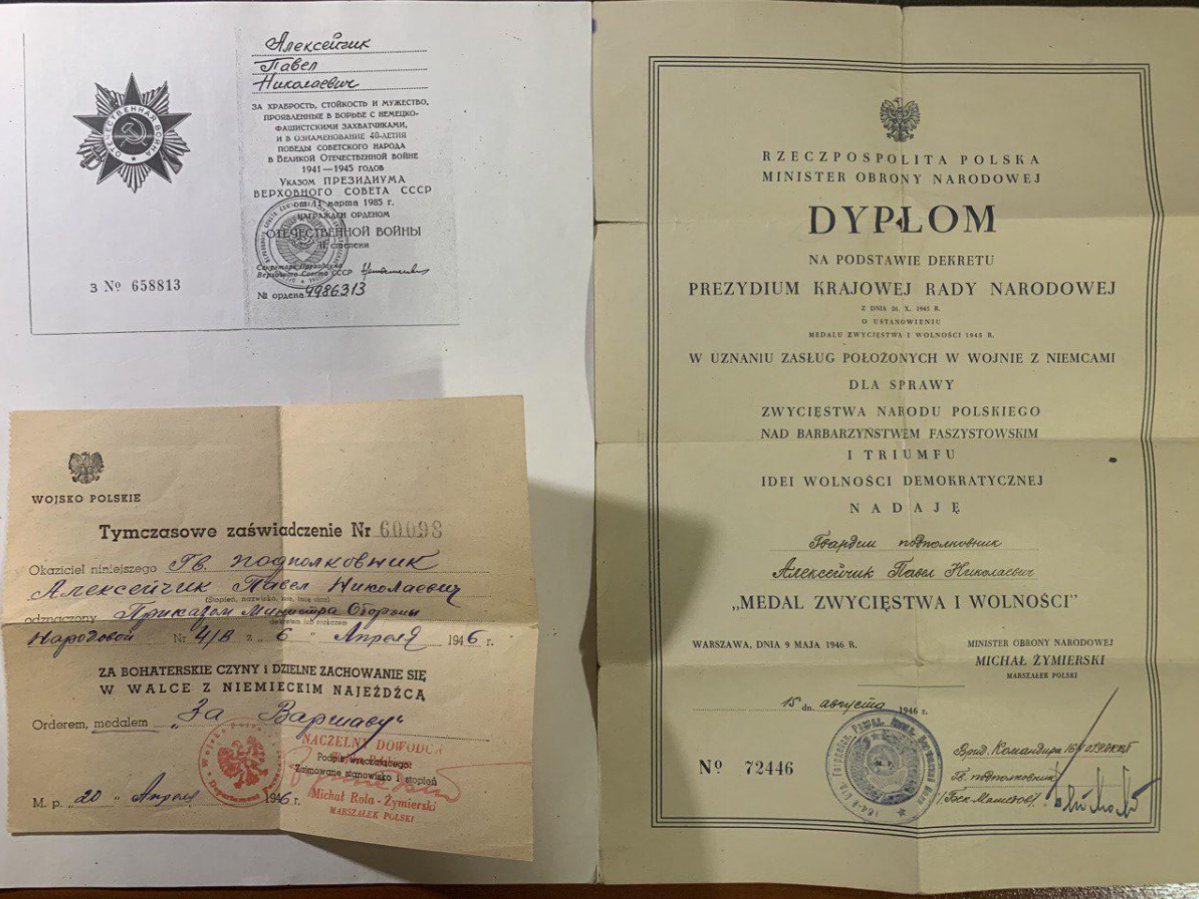 Алексейчик
Павел
Николаевич
ЗА ХРАБРОСТЬ, СТОЙКОСТЬ И МУЖЕСТВО,
ПРОЯВЛЕННЫЕ В БОРЬБЕ С НЕМЕЦКО-
ФАШИСТСКИМИ ЗАХВАТЧИКАМИ,
И В ОЗНАМЕНОВАНИЕ 40-ЛЕТИЯ
ПОБЕДЫ СОВЕТСКОГО НАРОДА
В ВЕЛИКОЙ ОТЕЧЕСТВЕННОЙ ВОЙНЕ
1941—1945 ГОДОВ
УКАЗОМ ПРЕЗИДИУМА
ВЕРХОВНОГО СОВЕТА СССР
от 11 марта 1985 г.
НАГРАЖДЕН ОРДЕНОМ
ОТЕЧЕСТВЕННОЙ ВОЙНЫ
II степени
Секретарь Президиума
Верховного Совета СССР
№ ордена 4986313
ОТЕЧЕСТВЕННАЯ ВОЙНА
З № 658813
WOJSKO POLSKIE
Tymczasowe zaświadczenie Nr 60098
Okaziciel niniejszego Гв. подполковник
Алексейчик Павел Николаевич
(Stopień, nazwisko, imię
odznaczony Приказом Министра Обороны
dekretem lub rozkazem
Народовой Nr 4/В z „6" Апреля 1946 r.
ZA BOHATERSKIE CZYNY i DZIELNE ZACHOWANIE SIĘ
W WALCE Z NIEMIECKIM NAJEŹDŹCĄ
Orderem, medalem „За Варшаву"
NACZELNY DOWÓDCA
Podpis wręczającego:
Zajmowane stanowisko i stopień
Michał Rola-Żymierski
MARSZAŁEK POLSKI
M. p. „20" Апреля 1946 r.
RZECZPOSPOLITA POLSKA
MINISTER OBRONY NARODOWEJ
DYPLOM
NA PODSTAWIE DEKRETU
PREZYDIUM KRAJOWEJ RADY NARODOWEJ
Z DNIA 26. X. 1945 R.
O USTANOWIENIU
MEDALU ZWYCIĘSTWA I WOLNOŚCI 1945 R.
W UZNANIU ZASŁUG POŁOŻONYCH W WOJNIE Z NIEMCAMI
DLA SPRAWY
ZWYCIĘSTWA NARODU POLSKIEGO
NAD BARBARZYŃSTWEM FASZYSTOWSKIM
I TRIUMFU
IDEI WOLNOŚCI DEMOKRATYCZNEJ
NADAJĘ
Гвардии подполковник
Алексейчик Павел Николаевич
„MEDAL ZWYCIĘSTWA I WOLNOŚCI"
WARSZAWA, DNIA 9 MAJA 1946 R.
MINISTER OBRONY NARODOWEJ
MICHAŁ ŻYMIERSKI
MARSZAŁEK POLSKI
15 dn. августа 1946 r.
№ 72446
Врид. Командира
Гв. подполковник